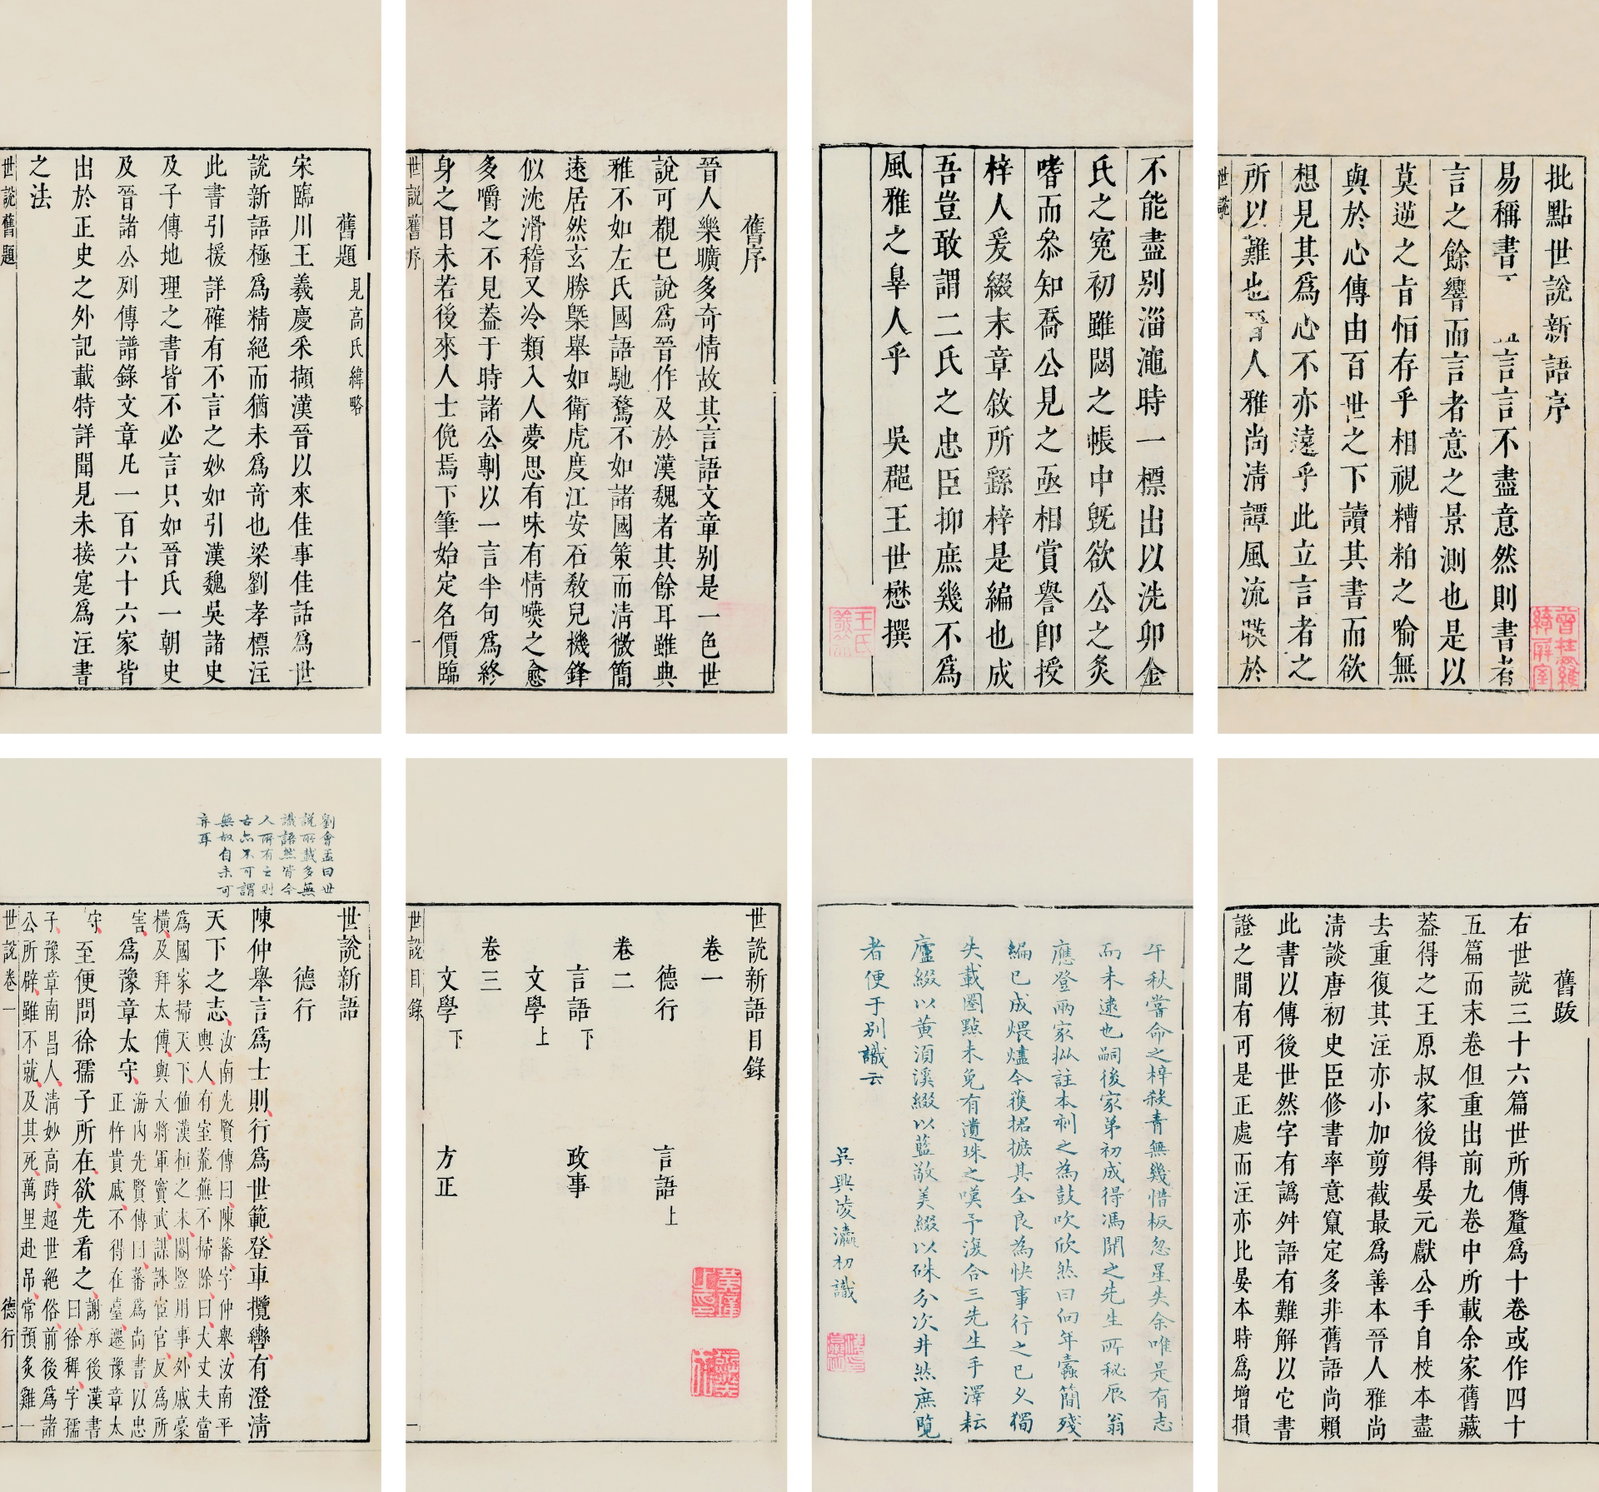 批點世說新語序
易稱書 言言不盡意然則書者
言之餘響而言者意之景測也是以
莫逆之旨恒存乎相視糟粕之喻無
與於心傳由百世之下讀其書而欲
想見其爲心不亦遠乎此立言者之
所以難也晉人雅尚清譚風流暎於
世說
不能盡別淄澠時一標出以洗卯金
氏之寃初雖閟之帳中旣欲公之炙
嗜而叅知喬公見之亟相賞譽卽授
梓人爰綴末章敘所繇梓是編也成
吾豈敢謂二氏之忠臣抑庶幾不爲
風雅之辠人乎 吳郡王世懋撰
王氏
舊序
晉人樂曠多奇情故其言語文章别是一色世
說可覩已說爲晉作及於漢魏者其餘耳雖典
雅不如左氏國語馳騖不如諸國策而清微簡
遠居然玄勝槩舉如衛虎度江安石教兒機鋒
似沈滑稽又冷類入人夢思有味有情嚥之愈
多嚼之不見葢于時諸公剸以一言半句爲終
身之目未若後來人士俛焉下筆始定名價臨
世說舊序 一
舊題 見高氏緯略
宋臨川王義慶采擷漢晉以來佳事佳話爲世
說新語極爲精絕而猶未爲竒也梁劉孝標注
此書引援詳確有不言之妙如引漢魏吳諸史
及子傳地理之書皆不必言只如晉氏一朝史
及晉諸公列傳譜錄文章凡一百六十六家皆
出於正史之外記載特詳聞見未接寔爲注書
之法
世說舊題 一
舊跋
右世說三十六篇世所傳釐爲十卷或作四十
五篇而末卷但重出前九卷中所載余家舊藏
葢得之王原叔家後得晏元獻公手自校本盡
去重復其注亦小加剪截最爲善本晉人雅尚
清談唐初史臣修書率意竄定多非舊語尚賴
此書以傳後世然字有譌舛語有難解以它書
證之間有可是正處而注亦比晏本時爲增損
午秋嘗命之梓殺青無幾惜板忽星失余唯是有志
而未逮也嗣後家弟初成得馮開之先生所秘辰翁
應登兩家批註本刻之為鼓吹欣然曰向年蠹簡殘
編已成煨燼今獲捃摭其全良為快事行之已久獨
失載圈點未免有遺珠之嘆予復合三先生手澤耘
廬綴以黃須溪綴以藍敬美綴以硃分次井然庶覽
者便于別識云
吳興凌瀛初識
世說新語目錄
卷一
德行 言語上
卷二
言語下 政事
文學上
卷三
文學下 方正
世說目錄 一
劉會孟曰世
說所載多無
識語然皆今
人所有之則
古亦不可謂
無故自未可
弃耳
世說新語
德行
陳仲舉言爲士則行爲世範登車攬轡有澄清
天下之志汝南先賢傳曰陳蕃字仲舉汝南平
輿人有室荒蕪不掃除曰大丈夫當
爲國家掃天下值漢桓之末閹豎用事外戚豪
橫及拜太傅與大將軍竇武謀誅宦官反爲所
害爲豫章太守海内先賢傳曰蕃爲尚書以忠
正忤貴戚不得在臺遷豫章太
守至便問徐孺子所在欲先看之謝承後漢書
曰徐穉字孺
子豫章南昌人清妙高跱超世絕俗前後爲諸
公所辟雖不就及其死萬里赴吊常預炙雞一
世說卷一 德行 一